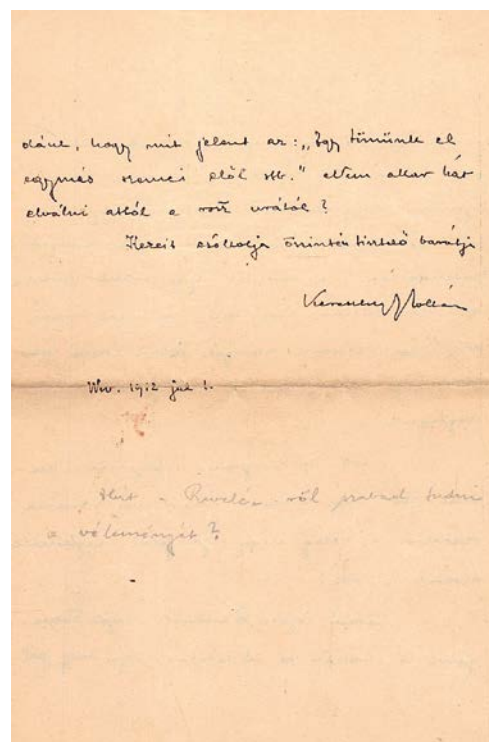 dánt, hogy mit jelent az: „Így tűnünk el
egymás szemei elől stb.” Nem akar hát
elválni attól a rossz urától?
Kezeit csókolja őszintén tisztelő barátja
Zoltán
1912 júl 1.
Hát a ről szabad tudni
a véleményét?